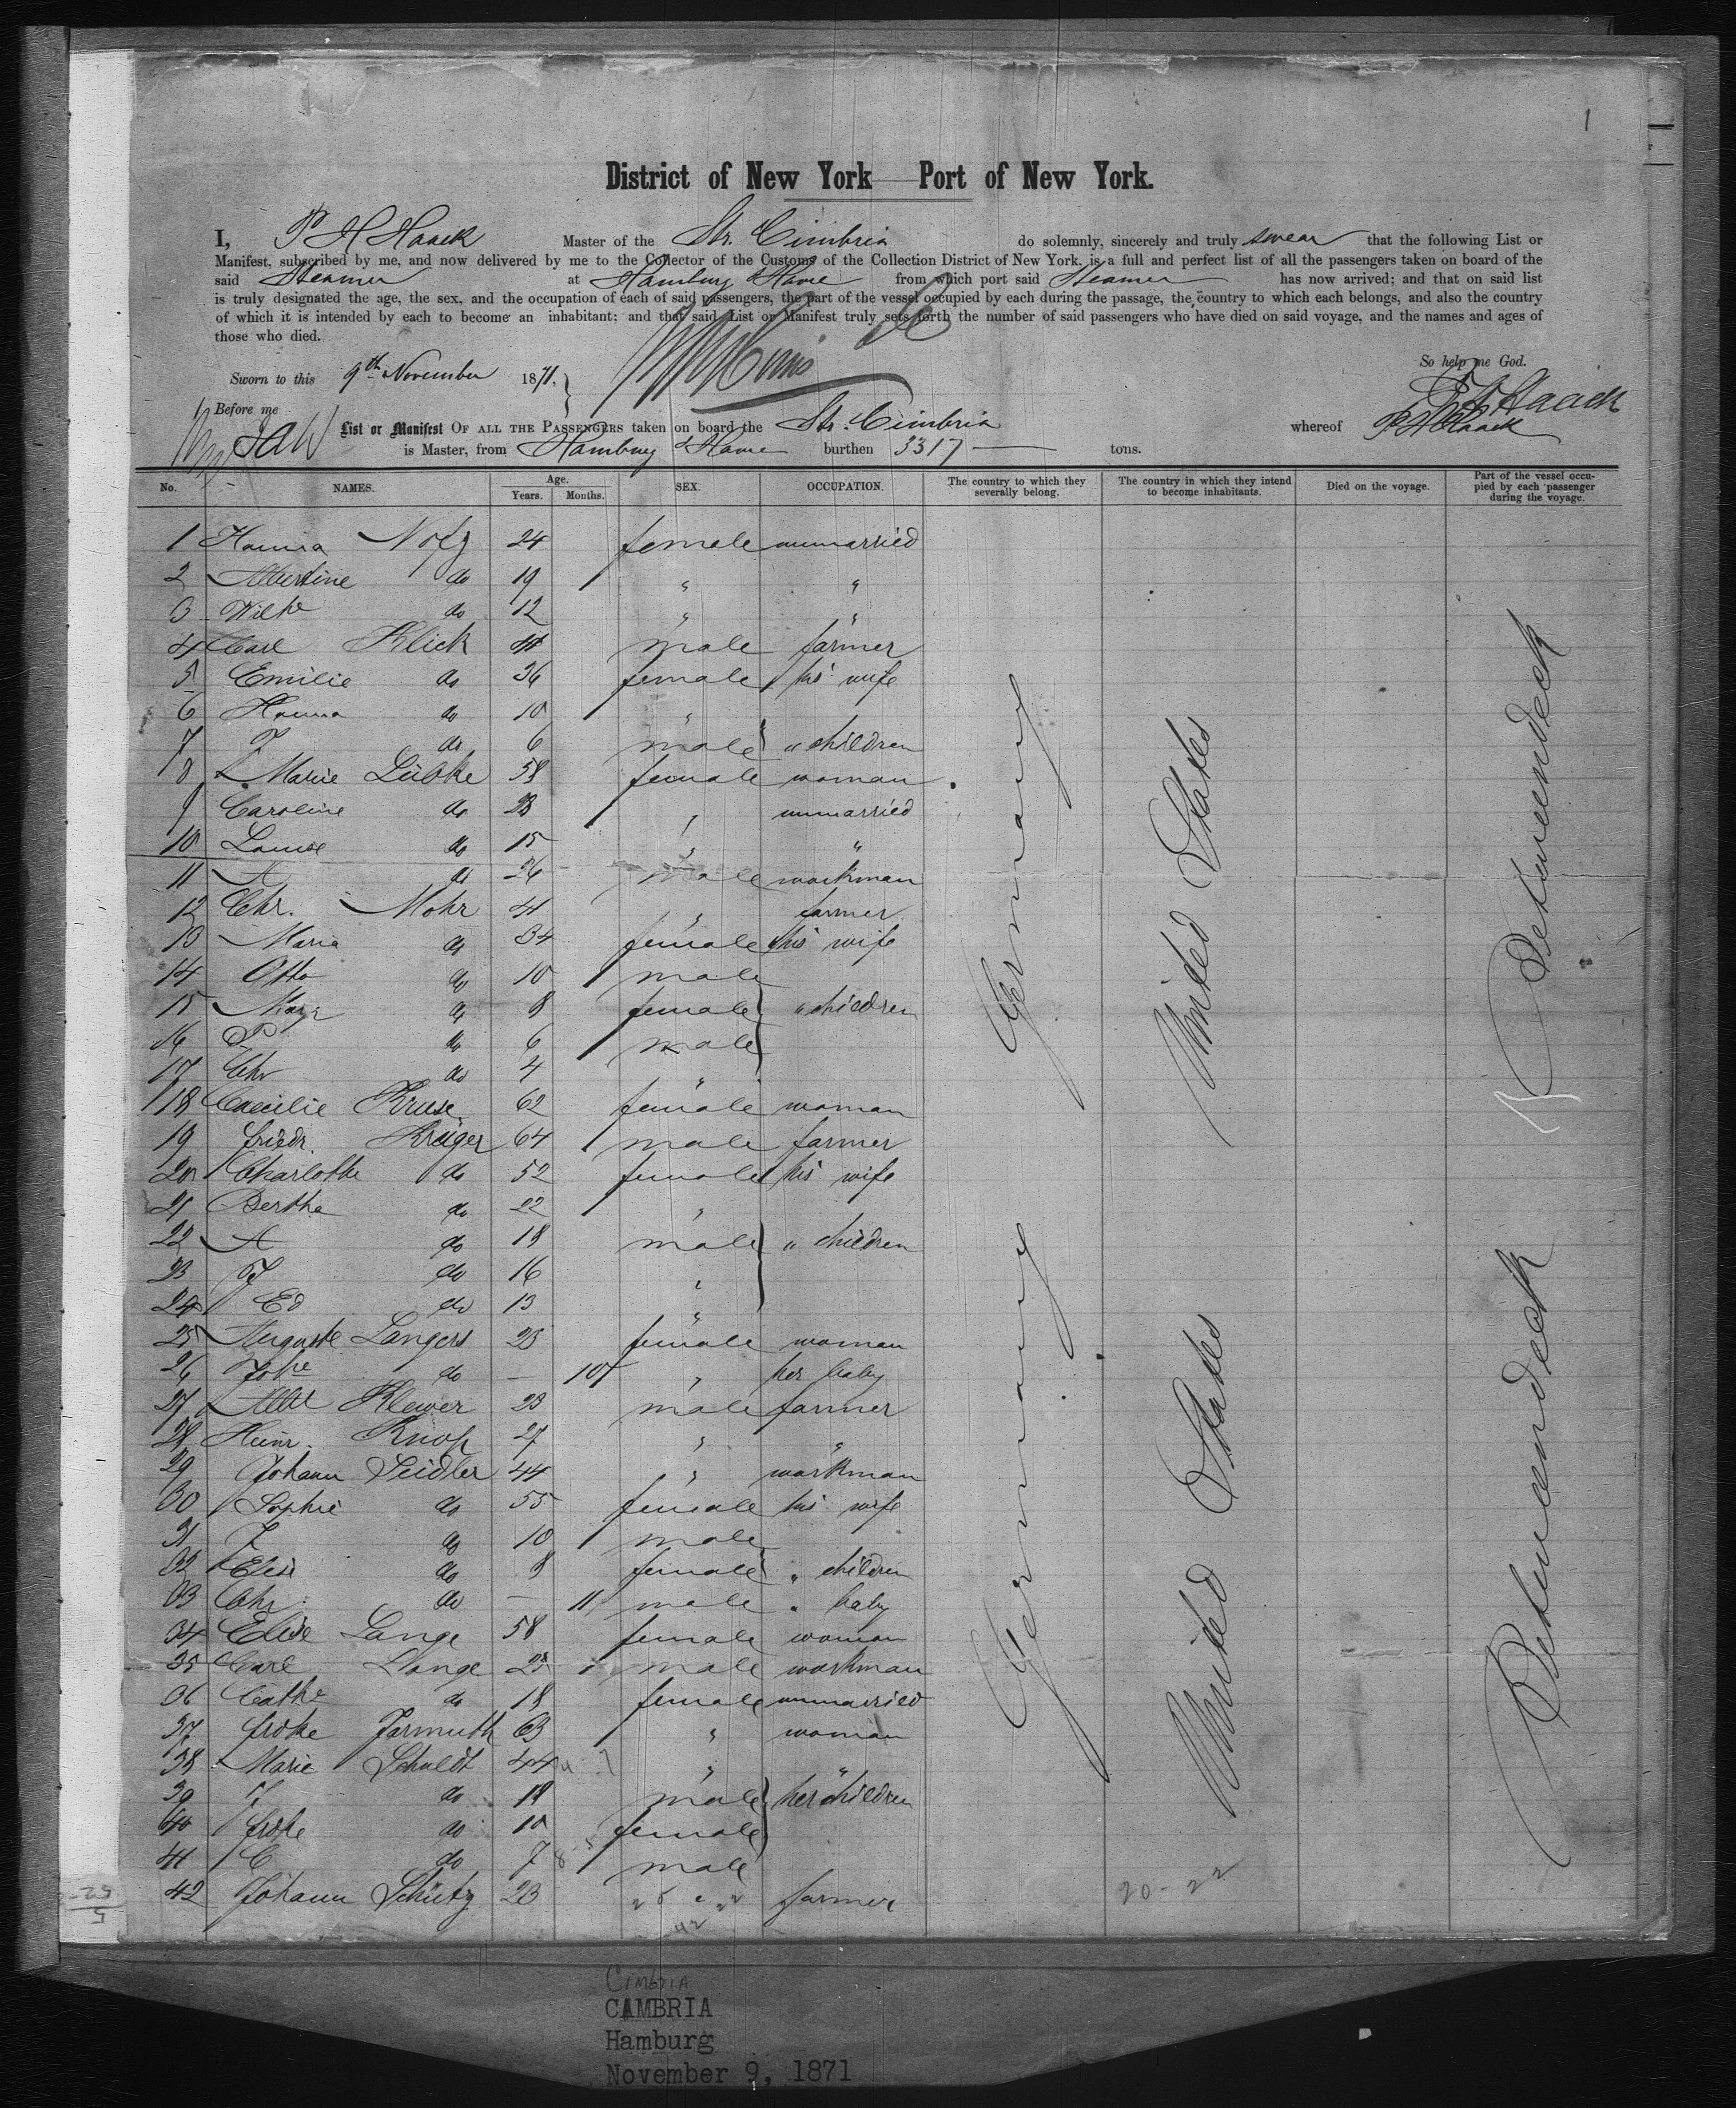 1
District of New York Port of New York.
I, P H Haack Master of the Str. Cimbria do solemnly, sincerely and truly swear that the following List or
Manifest, subscribed by me, and now delivered by me to the Collector of the Customs of the Collection District of New York, is a full and perfect list of all the passengers taken on board of the
said Steamer at Hamburg & Havre from which port said Steamer has now arrived; and that on said list
is truly designated the age, the sex, and the occupation of each of said passengers, the part of the vessel occupied by each during the passage, the country to which each belongs, and also the country
of which it is intended by each to become an inhabitant; and that said List or Manifest truly sets forth the number of said passengers who have died on said voyage, and the names and ages of
those who died.
So help me God.
Sworn to this 9th November 1871.
Haack
Before me
List or Manifest OF ALL THE PASSENGERS taken on board the Str. Cimbria whereof P H Haack
is Master, from Hamburg & Havre burthen 3317 tons.
No. NAMES. Age. Years. Months. SEX. OCCUPATION. The country to which they severally belong. The country in which they intend to become inhabitants. Died on the voyage. Part of the vessel occupied by each passenger during the voyage.
1 24 female unmarried
2 Albertine do 19 " "
3 Wilhe do 12 " "
4 Carl Klick male farmer
5 Emilie do 36 female his wife
6 Hanna do 10 "
7 do 6 male " children
8 Marie Lübke 58 female woman
9 Caroline do 28 " unmarried
10 Louise do 15 " "
11 A do 26 male workman
12 Chr. Mohr 41 " farmer
13 Maria do 34 female his wife
14 Otto do 10 male
15 do 8 female " children
16 P do 6 male
17 Chr do 4 "
18 Caecilie Kruse 62 female woman
19 Friedr. Krüger 64 male farmer
20 Charlotte do 52 female his wife
21 Bertha do 22 "
22 A do 18 male " children
23 do 16 "
24 Ed do 13 "
25 Auguste Langers 23 female woman
26 Johe do — 10 " her baby
27 Klewer 23 male farmer
28 Heinr. Knop 27 " "
29 Johann Seidler 44 " workman
30 Sophie do 55 female his wife
31 do 10 male
32 Elise do 8 female " children
33 Chr. do — 11 male " baby
34 Elise Lange 58 female woman
35 Carl Lange 25 male workman
36 Cathe do 18 female unmarried
37 Frdke Jarmuth 63 " woman
38 Marie Schuldt 44 " "
39 do 18 male her children
40 do 10 female
41 C do 7 male
42 Johann Schütz 23 " farmer
Germany
United States
Betweendeck
Germany
United States
Betweendeck
20-22
42
Cimbria
CAMBRIA
Hamburg
November 9, 1871